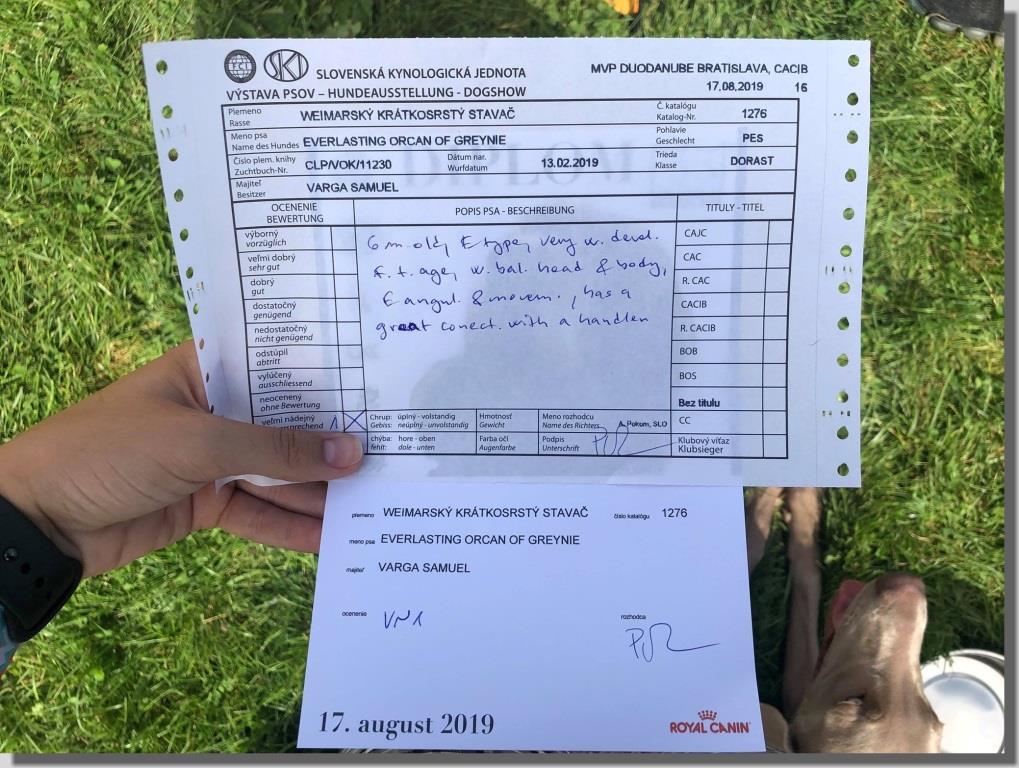 FCI SKJ SLOVENSKÁ KYNOLOGICKÁ JEDNOTA
MVP DUODANUBE BRATISLAVA, CACIB
VÝSTAVA PSOV – HUNDEAUSSTELLUNG - DOGSHOW
17.08.2019 16
Plemeno
Rasse
WEIMARSKÝ KRÁTKOSRSTÝ STAVAČ
Č. katalógu
Katalog-Nr.
1276
Meno psa
Name des Hundes
EVERLASTING ORCAN OF GREYNIE
Pohlavie
Geschlecht
PES
Číslo plem. knihy
Zuchtbuch-Nr.
CLP/VOK/11230
Dátum nar.
Wurfdatum
13.02.2019
Trieda
Klasse
DORAST
Majiteľ
Besitzer
VARGA SAMUEL
OCENENIE
BEWERTUNG
POPIS PSA - BESCHREIBUNG
TITULY - TITEL
výborný
vorzüglich
veľmi dobrý
sehr gut
dobrý
gut
dostatočný
genügend
nedostatočný
nicht genügend
odstúpil
abtritt
vylúčený
ausschliessend
neocenený
ohne Bewertung
veľmi nádejný 1 X
sprechend
6 m. old, E type, very w. devel.
f. t. age, w. bal. head & body,
E angul. & movem., has a
great conect. with a handler
CAJC
CAC
R. CAC
CACIB
R. CACIB
BOB
BOS
Bez titulu
CC
Klubový víťaz
Klubsieger
Chrup: úplný - volstandig
Gebiss: neúplný - unvolstandig
chýba: hore - oben
fehlt: dole - unten
Hmotnosť
Gewicht
Farba očí
Augenfarbe
Meno rozhodcu
Name des Richters
A. Pokum, SLO
Podpis
Unterschrift
plemeno WEIMARSKÝ KRÁTKOSRSTÝ STAVAČ číslo katalógu 1276
meno psa EVERLASTING ORCAN OF GREYNIE
majiteľ VARGA SAMUEL
ocenenie VN1
rozhodca
17. august 2019
ROYAL CANIN